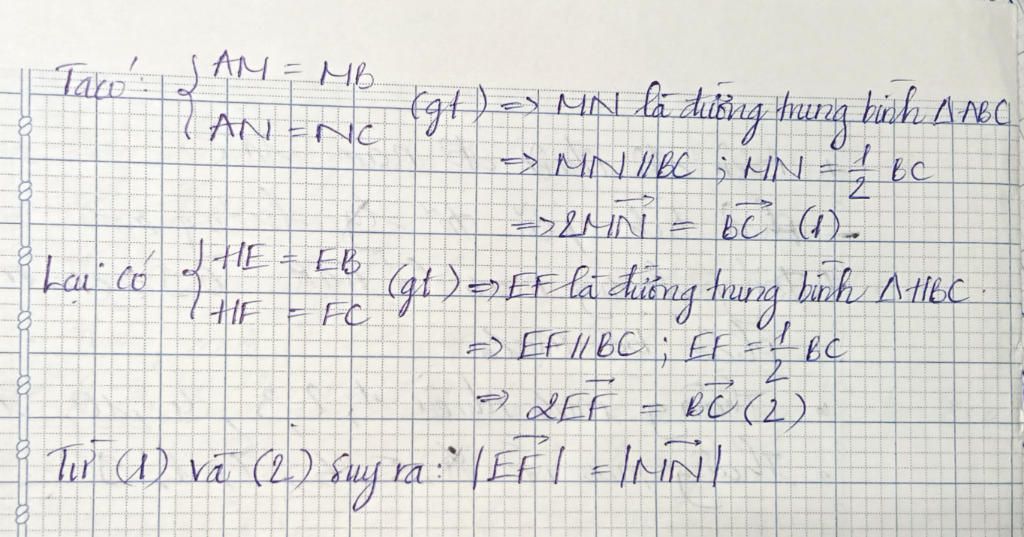 Ta có: { AM = MB
AN = NC (gt) => MN là đường trung bình △ABC
=> MN // BC ; MN = 1/2 BC
=> 2\overrightarrow{MN} = \overrightarrow{BC} (1).
Lại có { HE = EB
HF = FC (gt) => EF là đường trung bình △HBC.
=> EF // BC ; EF = 1/2 BC
=> 2\overrightarrow{EF} = \overrightarrow{BC} (2)
Từ (1) và (2) suy ra: |\overrightarrow{EF}| = |\overrightarrow{MN}|